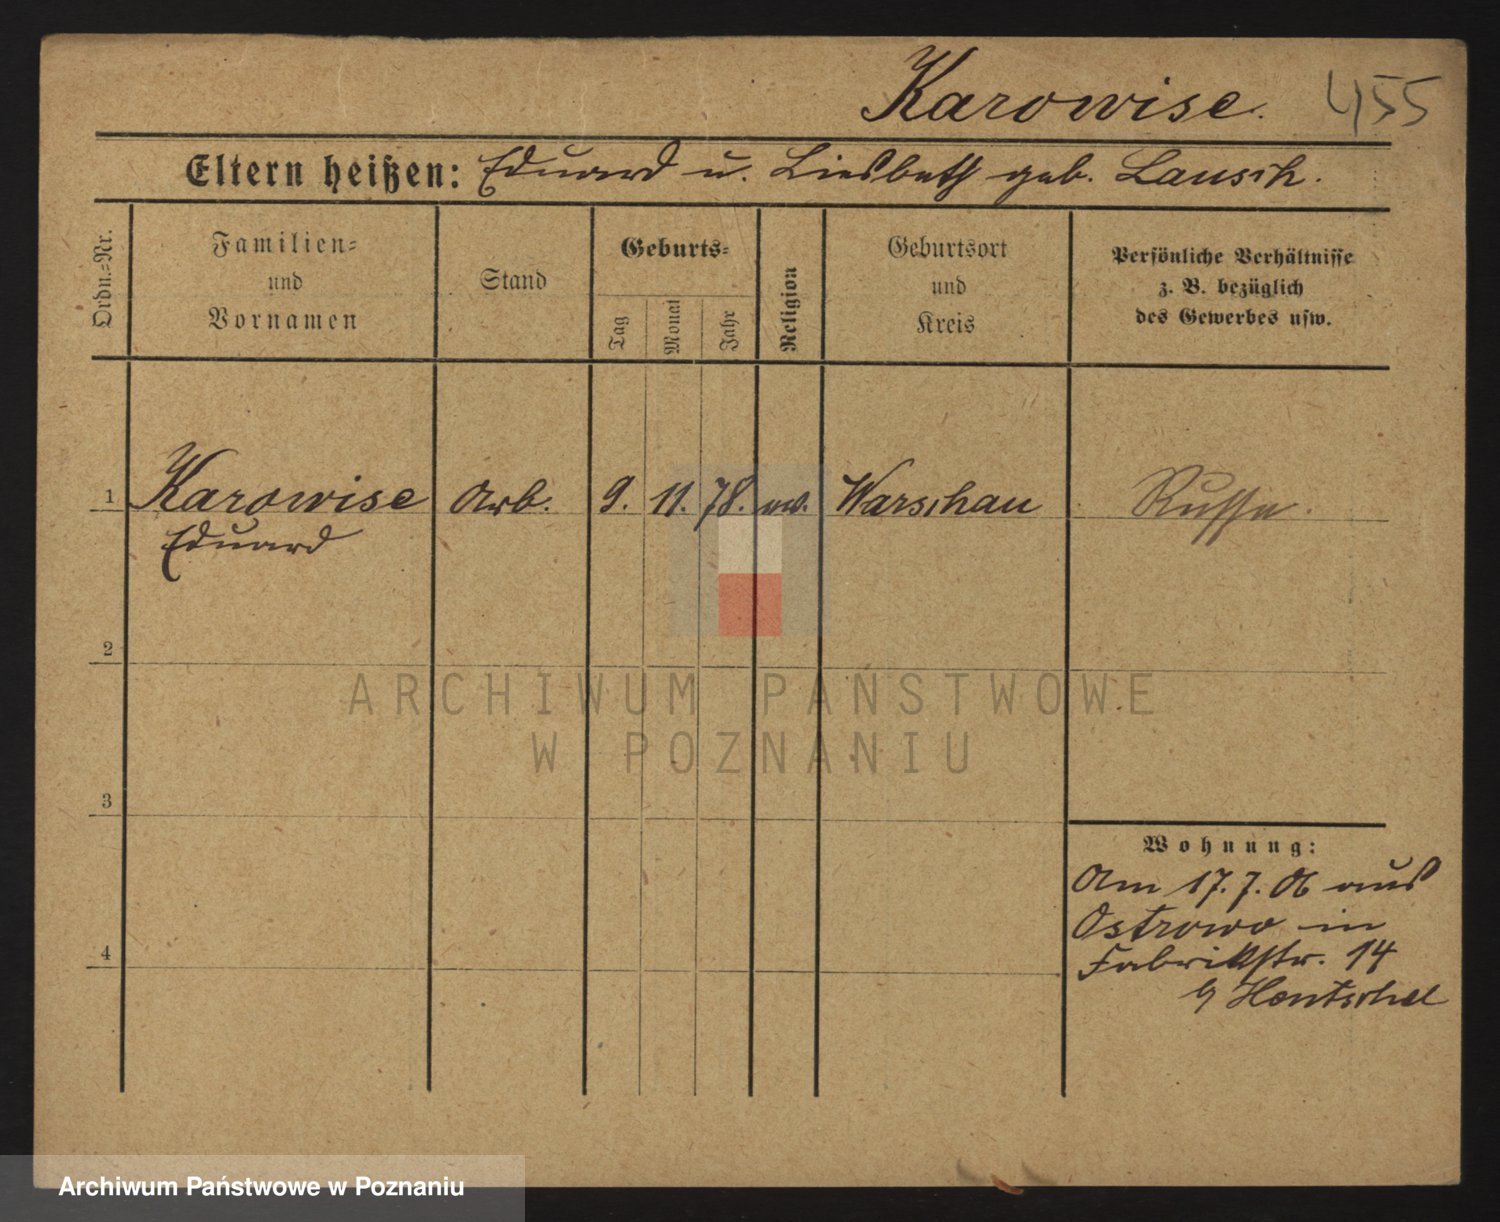 Karowise. 455
Eltern heißen: Eduard u. Liesbeth geb. Lausch.
Ordn.=Nr.
Familien=
und
Vornamen
Stand
Geburts=
Tag
Monat
Jahr
Religion
Geburtsort
und
Kreis
Persönliche Verhältnisse
z. B. bezüglich
des Gewerbes usw.
1 Karowise Arb. 9. 11. 78. ev. Warschau Russe.
Eduard
2
ARCHIWUM PAŃSTWOWE
W POZNANIU
3
Wohnung:
Am 17.7.06 aus
Ostrowo in
Fabrikstr. 14
4
b/ Hentschel
Archiwum Państwowe w Poznaniu